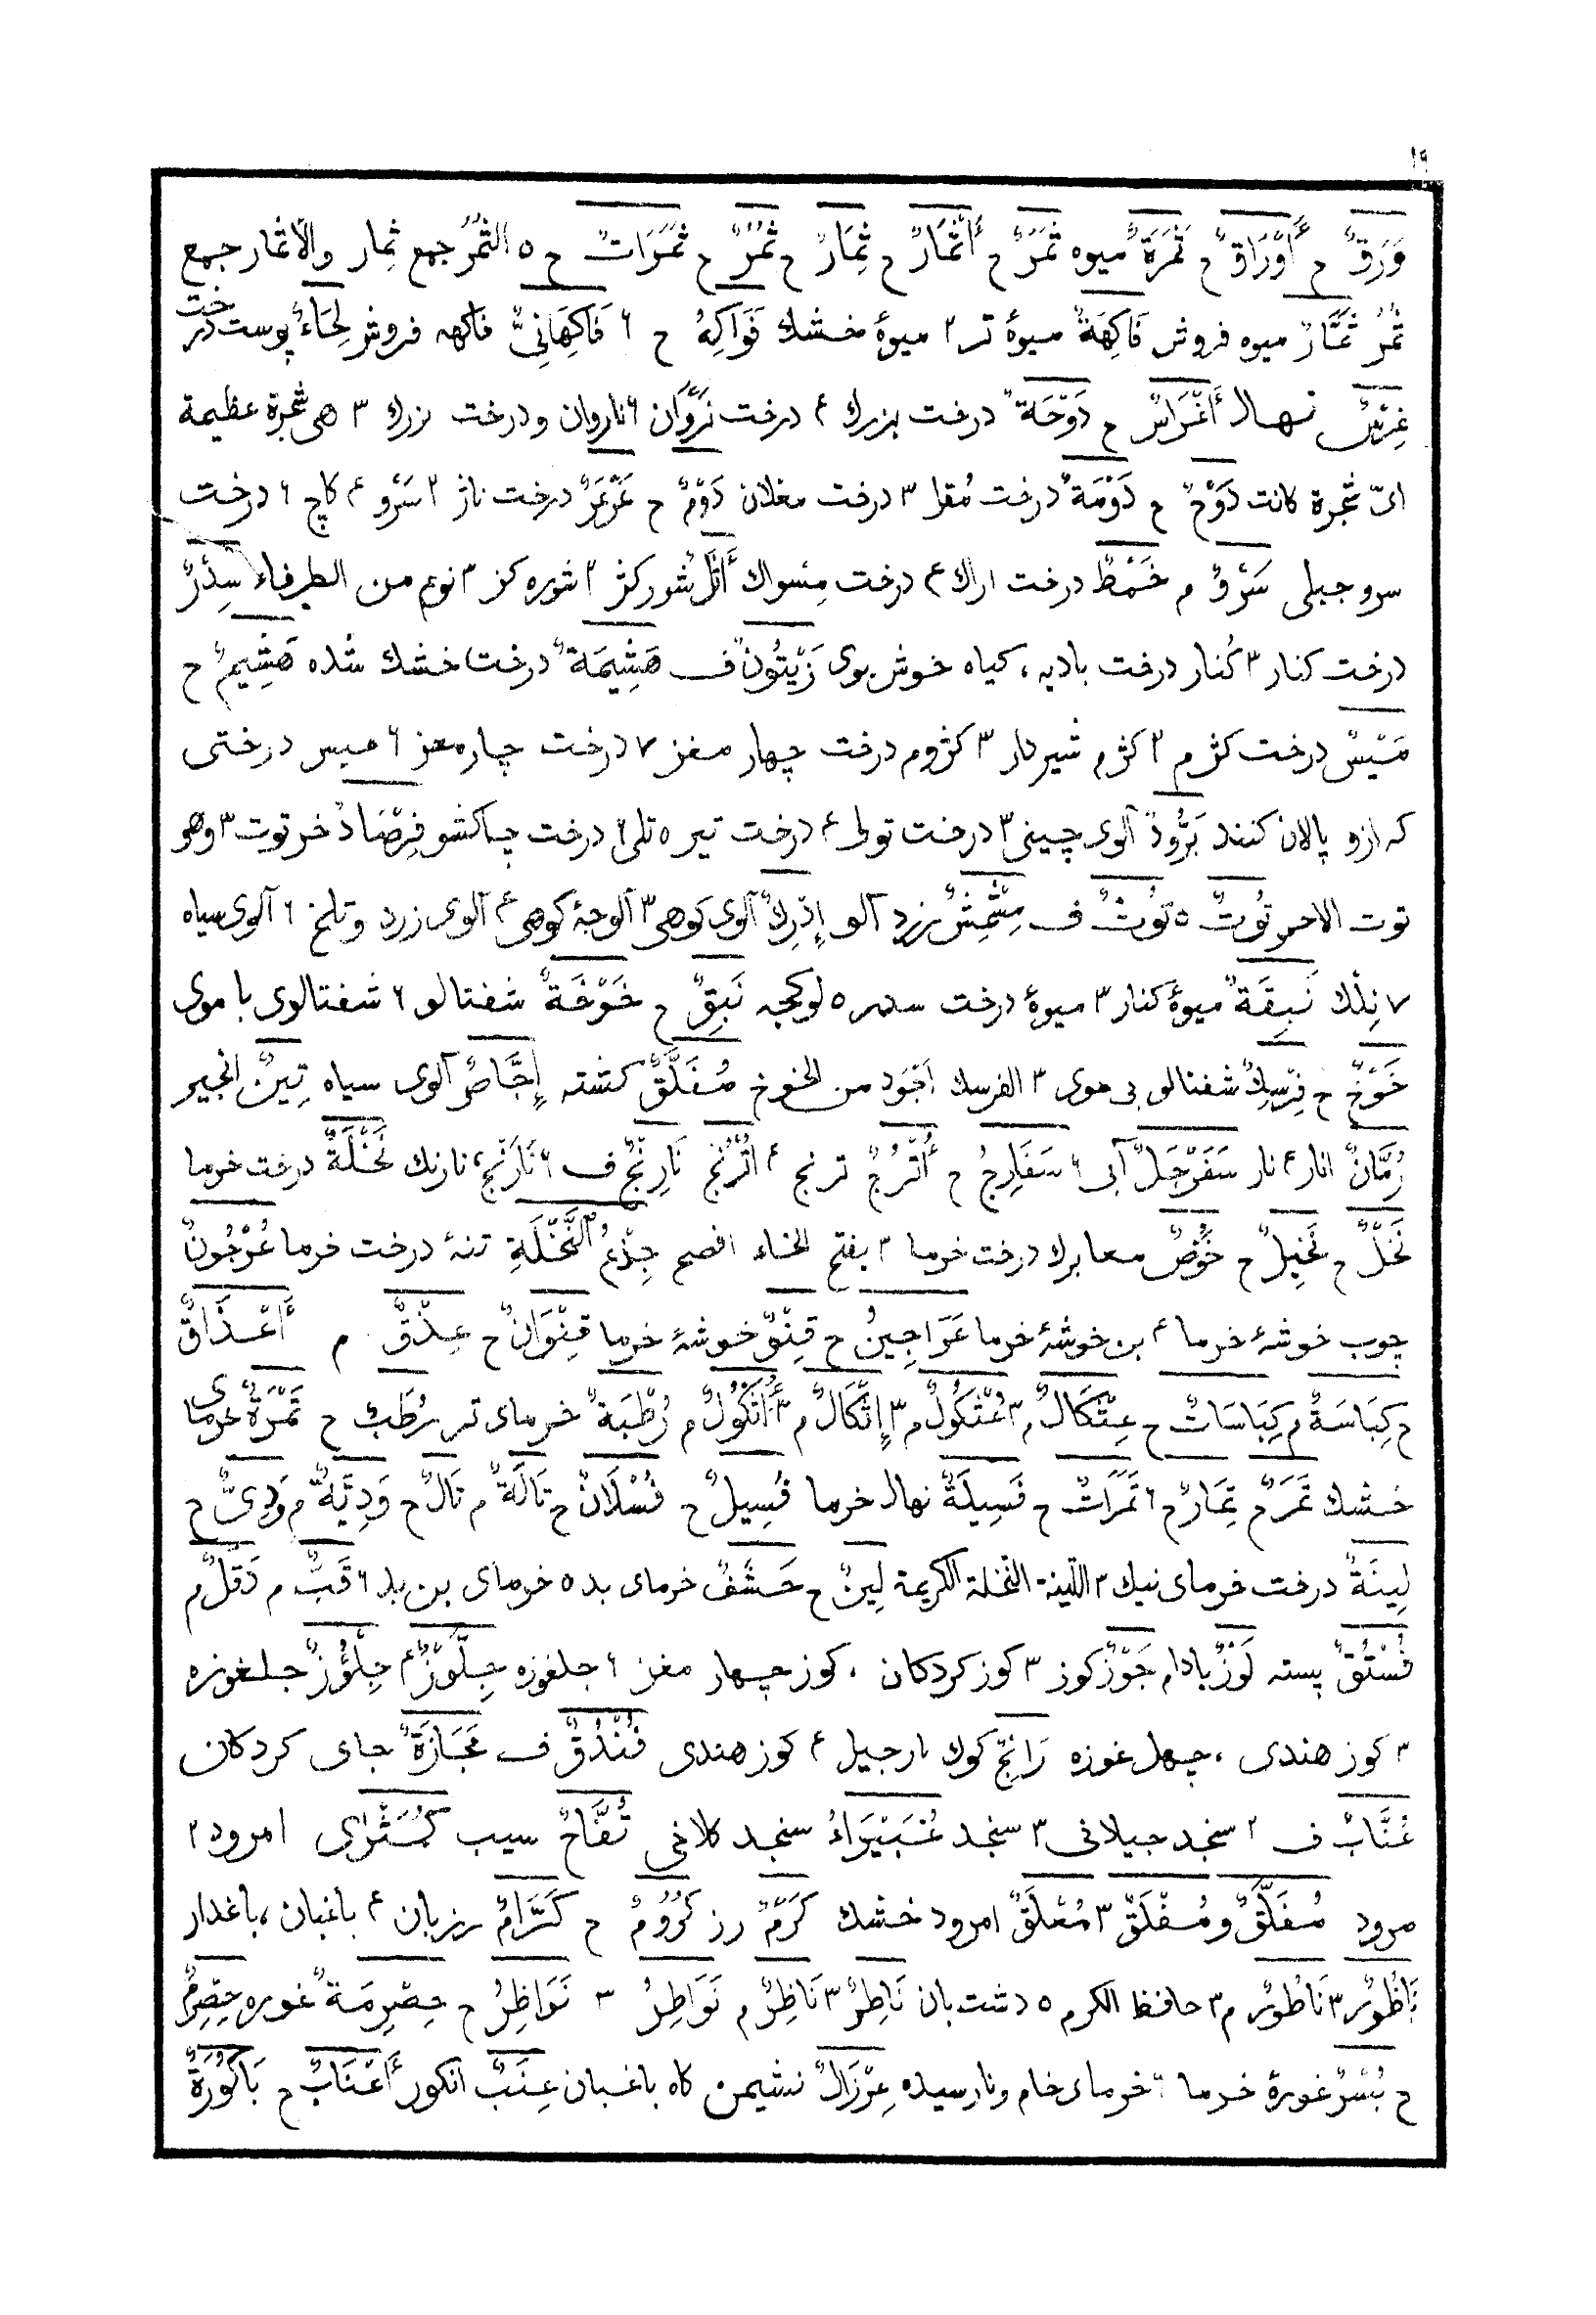 ١٩
وَرَقٌ ح أَوْرَاقٌ ح ثَمَرَةٌ ميوه ثَمَرٌ ح أَثْمَارٌ ح ثِمَارٌ ح ثُمُرٌ ح ثَمَرَاتٌ ح ٥ الثُمُر جمع ثِمار والاثمار جمع
ثُمُر ثَمَّارٌ ميوه فروش فَاكِهَةٌ ميوۀ تر ٢ ميوۀ خشك فَوَاكِهُ ح ٦ فَاكِهَانِىٌّ فاكهه فروش لِحَاءٌ پوست درخت
غِرْسٌ نهال أَغْرَاسٌ ح دَوْحَةٌ درخت بزرك ۴ درخت نَرْوَان ٦ ناروان ودرخت بزرك ٣ هى شجرة عظيمة
اىّ شجرة كانت دَوْحٌ ح دَوْمَةٌ درخت مُقل ٣ درخت مغلان دَوْمٌ ح عَرْعَرٌ درخت ناژ ٢ سَرْو ۴ كاج ٦ درخت
سرو جبلى سَرْوٌ م خَمْطٌ درخت اراك ۴ درخت مِسواك أَثْلٌ شوركز ٢ شوره كز ٣ نوع من الطرفاء سِدْرٌ
درخت كنار ٣ كُنار درخت باديه، كياه خوش بوى زَيْتُونٌ ف هَشِيمَةٌ درخت خشك شده هَشِيمٌ ح
مَيْسٌ درخت كژم ٢ كژم شيردار ٣ كژوم درخت چهار مغز ٧ درخت چارمعز ٦ ميس درختى
كه ازو پالان كنند بَرُّودٌ آلوى چينى ٣ درخت تولى ۴ درخت تيره ٥ تلى ٢ درخت چاكشو فِرْصَادٌ خر توت ٣ وهو
توت الاحمر تُوتٌ ٥ تُوثٌ ف مِشْمِشٌ زرد آلو إِدْرِكٌ آلوى كوهى ٣ آلوچۀ كوهى ۴ آلوى زرد وتلخ ٦ آلوى سياه
٧ نِلْك نَبِقَةٌ ميوۀ كنار ٣ ميوۀ درخت سدره ٥ لوكجه نَبِقٌ ح خَوْخَةٌ شفتالو ٦ شفتالوى با موى
خَوْخٌ ح فِرْسِكٌ شفتالو بى موى ٣ الفرسك اجود من الخوخ مُفَلَّقٌ كشته إِجَّاصٌ آلوى سياه تِينٌ انجير
رُمَّانٌ انار ۴ نار سَفَرْجَلٌ آبى ٦ سَفَارِجُ ح أُتْرُجٌّ ترنج ۴ اتْرُنْج نَارِنْجٌ ف ٦ نَارَنْج، نارنك نَخْلَةٌ درخت خرما
نَخْلٌ ح نَخِيلٌ ح خُوصٌ معا برك درخت خرما ٣ بفتح الخاء افصح جِذْعُ النَّخْلَةِ تنۀ درخت خرما عُرْجُونٌ
چوب خوشۀ خرما ۴ بن خوشۀ خرما عَرَاجِينُ ح قِنْوٌ خوشۀ خرما قِنْوَانٌ ح عِذْقٌ م أَعْذَاقٌ
ح كِبَاسَةٌ م كِبَاسَاتٌ ح عِثْكَالٌ م ٣ عُثْكُولٌ م ٣ إِثْكَالٌ م ٣ أُثْكُولٌ م رُطْبَةٌ خرماى تر رُطَبٌ ح تَمْرَةٌ خرماى
خشك تَمَرٌ ح تِمَارٌ ح ٦ تَمَرَاتٌ ح فَسِيلَةٌ نهال خرما فَسِيلٌ ح فُسْلَانٌ ح تَالَةٌ م تَالٌ ح وَدِيَّةٌ م وَدِىٌّ ح
لِينَةٌ درخت خرماى نيك ٣ اللينة النخلة الكريمة لِينٌ ح حَشَفٌ خرماى بد ٥ خرماى بن بد ٦ قَبٌّ م دَقَلٌ م
فُسْتُقٌ پسته لَوْزٌ بادام جَوْزٌ كوز ٣ كوز كردكان، كوز چهار مغز ٦ جلغوزه جِلَّوْزٌ ۴ جِلْؤُزٌ جلغوزه
٣ كوز هندى، چهل غوزه رَانَجٌ كوك نارجيل ۴ كوز هندى فُنْدُقٌ ف مَجَازَةٌ جاى كردكان
عُنَّابٌ ف ٢ سنجد جيلانى ٣ سنجد غُبَيْرَاءُ سنجد كلاخى تُفَّاحٌ سيب كُمَّثْرَاى امرود ٢
مرود مُفَلَّقٌ ومُفْلَقٌ ٣ مُعْلَقٌ امرود خشك كَرْمٌ رز كُرُومٌ ح كَرَّامٌ رزبان ۴ باغبان، باغدار
نَاظُورٌ ٣ نَاطُورٌ م ٣ حافظ الكرم ٥ دشت بان نَاطِرٌ ٣ نَاظِرٌ م نَوَاطِرُ ٣ نَوَاظِرُ ح حِصْرِمَةٌ غوره حِصْرِمٌ
ح بُسْرٌ غورۀ خرما ٦ خرماى خام ونارسيده عِرْزَالٌ نشيمن كاه باغبان عِنَبٌ انكور أَعْنَابٌ ح بَاكُورَةٌ